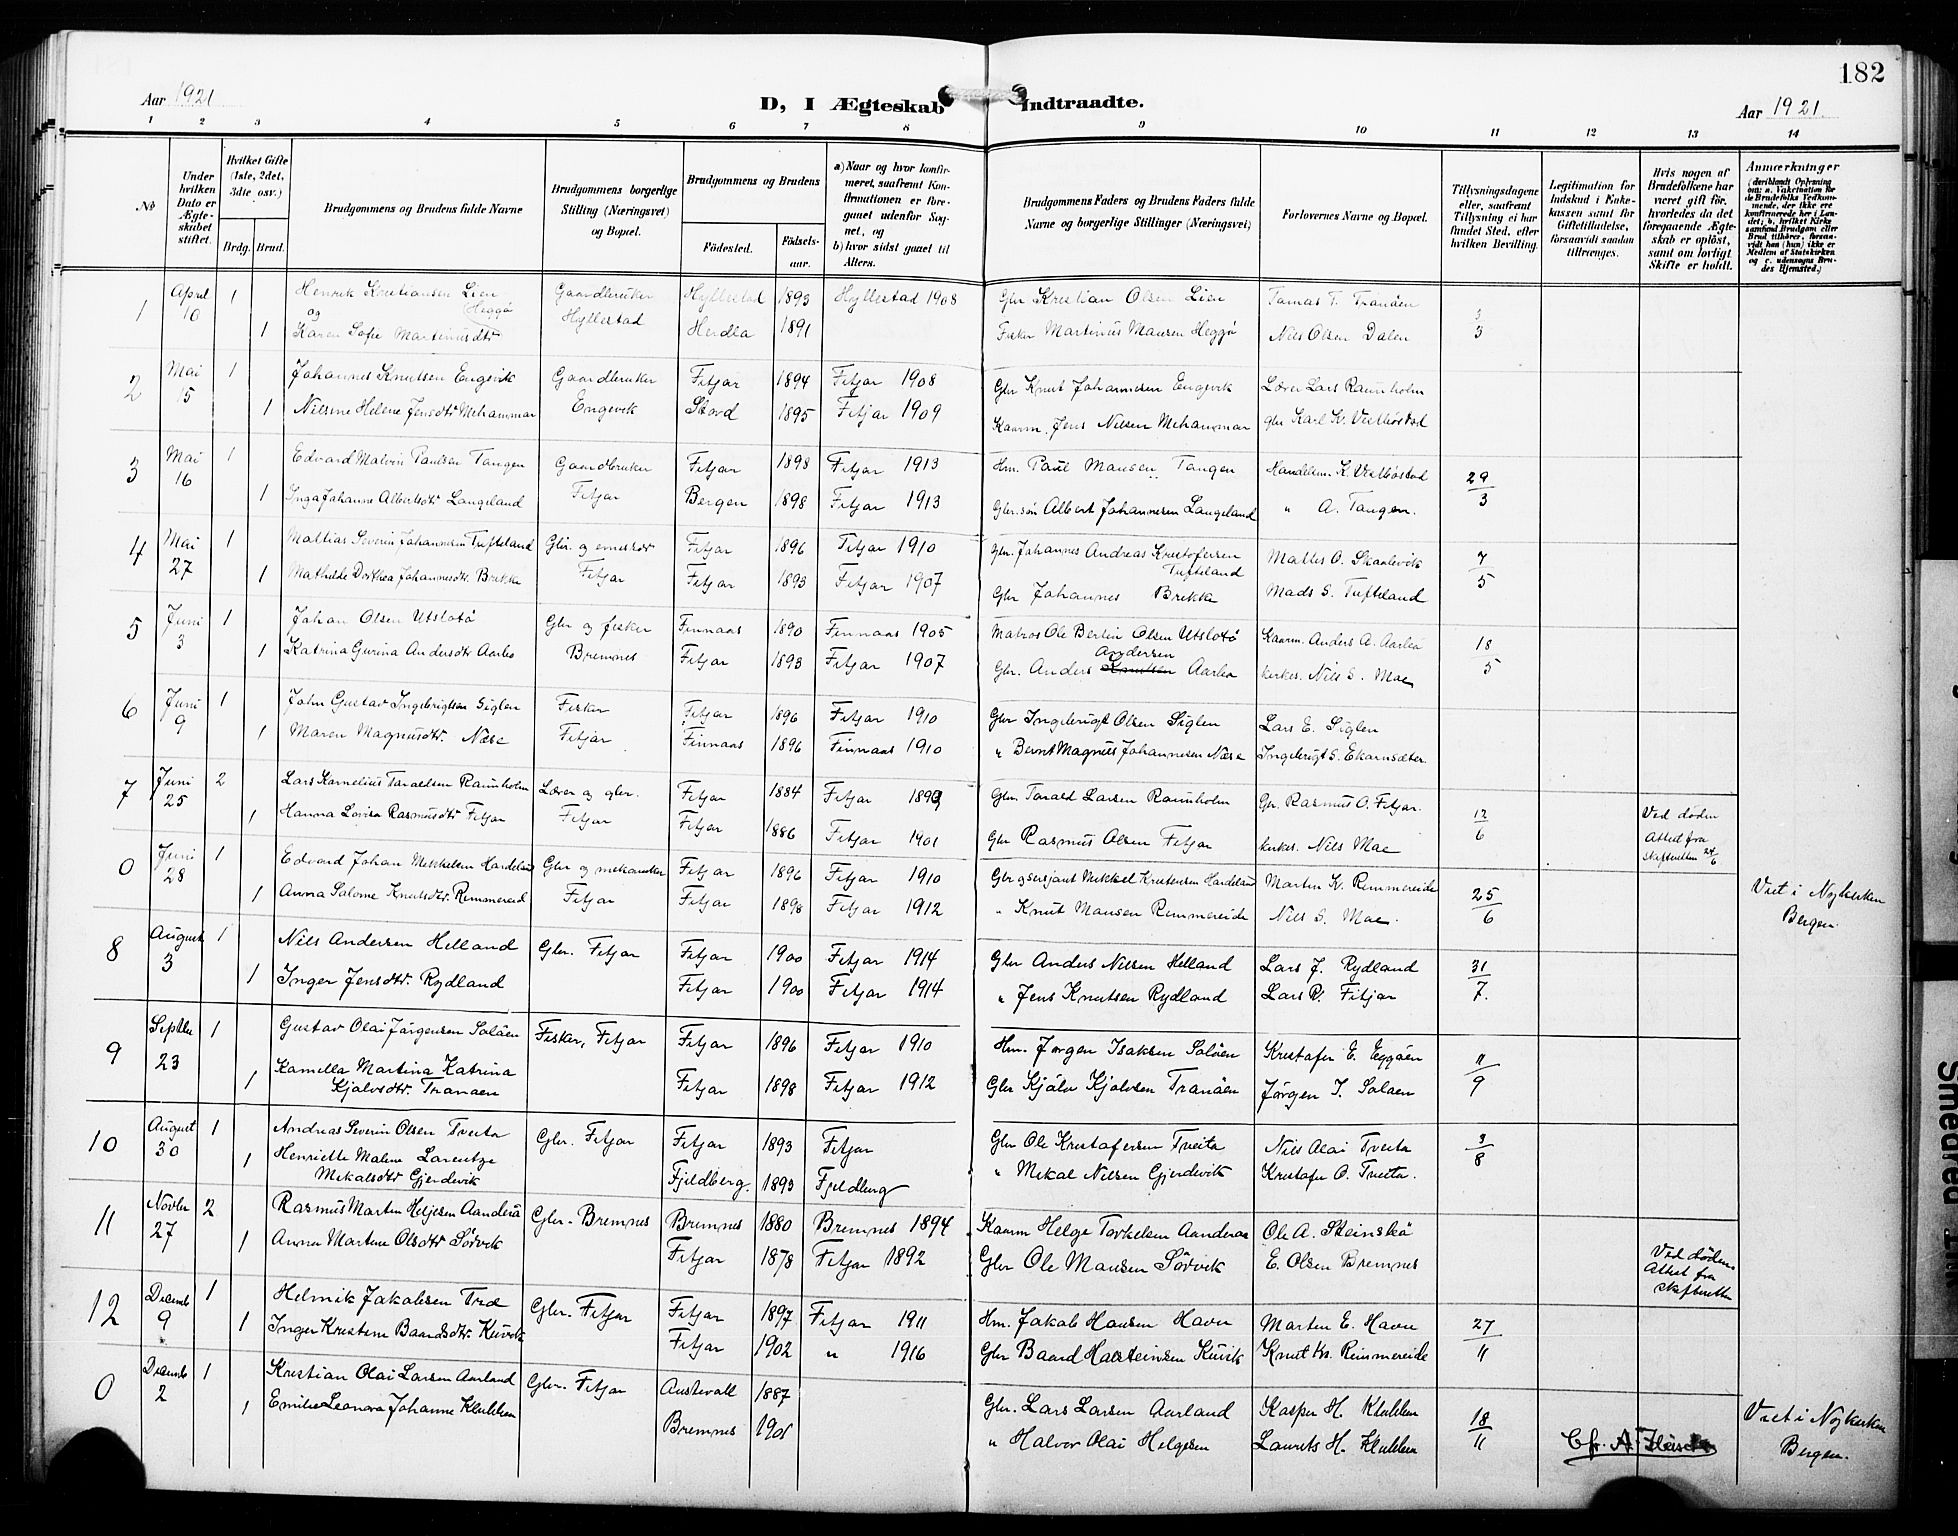 182
Aar 1921
D, I Ægteskab Indtraadte.
Aar 1921
1 2 3 4 5 6 7 8 9 10 11 12 13 14
No
Under hvilken Dato er Ægteskabet stiftet.
Hvilket Gifte (1ste, 2det, 3die osv.)
Brdg. Brud.
Brudgommens og Brudens fulde Navne
Brudgommens borgerlige Stilling (Næringsvei) og Bopæl.
Brudgommens og Brudens
Fødested.
Fødselsaar.
a) Naar og hvor konfirmeret, saafremt Konfirmationen er foregaaet udenfor Sognet, og
b) hvor sidst gaaet til Alters.
Brudgommens Faders og Brudens Faders fulde Navne og borgerlige Stillinger (Næringsvei)
Forlovernes Navne og Bopæl.
Tillysningsdagene eller, saafremt Tillysning ei har fundet Sted, efter hvilken Bevilling.
Legitimation for Indskud i Enkekassen samt for Giftetilladelse, forsaavidt saadan tiltrænges.
Hvis nogen af Brudefolkene har været gift før, hvorledes da det foregaaende Ægteskab er opløst, samt om lovligt Skifte er holdt.
Anmærkninger
1 April 10 1 Henrik Kristiansen Lien Gaardbruker Hyllestad 1893 Hyllestad 1908 Gbr Kristian Olsen Lien Tomas T. Tranøen 3/3
og Heggø
1 Karen Sofie Martinusdtr Hyllestad Herdla 1891 Fisker Martinus Mansen Heggø Nils Olsen Dalen
2 Mai 15 1 Johannes Knutsen Engevik Gaardbruker Fitjar 1894 Fitjar 1908 Gbr Knut Johannesen Engevik Lærer Lars Raunholm
1 Nilsine Helene Jensdtr Mehammar Engevik Stord 1895 Fitjar 1909 Kaarm. Jens Nilsen Mehammar gbr Karl K. Vestbøstad
3 Mai 16 1 Edvard Malvin Paulsen Tangen Gaardbruker Fitjar 1898 Fitjar 1913 Hm. Paul Mansen Tangen Handelsm. K. Vestbøstad 29/3
1 Inga Johanne Albertsdtr Langeland Fitjar Bergen 1898 Fitjar 1913 Gbr.søn Albert Johannesen Langeland " A. Tangen.
4 Mai 27 1 Mattias Severin Johannesen Tufteland Gbr. og Fitjar 1896 Fitjar 1910 Gbr. Johannes Andreas Kristofersen Tufteland Mattes O. Skaalevik 7/5
1 Mathilde Dorthea Johannesdtr. Brekke Fitjar Fitjar 1893 Fitjar 1907 Gbr Johannes Brekke Mads S. Tufteland
5 Juni 3 1 Johan Olsen Utslotø Gbr og fisker Finnaas 1890 Finnaas 1905 Matros Ole Bertin Olsen Utslotø Kaarm. Anders A. Aarbø 18/5
Andersen
1 Katrina Gurina Andersdtr Aarbø Bremnes Fitjar 1893 Fitjar 1907 Gbr. Anders Knutsen Aarbø kirkes. Nils S. Mæ
6 Juni 9 1 John Gustav Ingebrigtsen Siglen Fisker Fitjar 1896 Fitjar 1910 Gbr Ingebrigt Olsen Siglen Lars E. Siglen
1 Maren Magnusdtr. Næse Fitjar Finnaas 1896 Finnaas 1910 " Bernt Magnus Johannesen Næse Ingebrigt S. Ekornsæter
7 Juni 25 2 Lars Kornelius Taraldsen Raunholm Lærer og gbr. Fitjar 1884 Fitjar 1899 Gbr. Tarald Larsen Raunholm Gbr. Rasmus O. Fitjar. 12/6 Ved døden
1 Hanna Lovisa Rasmusdtr Fitjar Fitjar Fitjar 1886 Fitjar 1901 Gbr Rasmus Olsen Fitjar kirkes. Nils Mæ Attest fra skifteretten 24/6
0 Juni 28 1 Edvard Johan Mikkelsen Hardeland Gbr og mekaniker Fitjar 1896 Fitjar 1910 Gbr og sersjant Mikkel Kristensen Hardeland Marten K. Rimmereide 25/6 Viet i Nykirken
1 Anna Salome Knutsdtr. Rimmereid Fitjar Fitjar 1898 Fitjar 1912 " Knut Mansen Rimmereide Nils S. Mæ. Bergen.
8 August 3 1 Nils Andersen Helland Gbr. Fitjar Fitjar 1900 Fitjar 1914 Gbr Anders Nilsen Helland Lars J. Rydland 31/7.
1 Inger Jensdtr. Rydland Fitjar 1900 Fitjar 1914 " Jens Knutsen Rydland Lars R. Fitjar
9 Septbr 23 1 Gustav Olai Jørgensen Soløen Fisker, Fitjar Fitjar 1896 Fitjar 1910 Hm. Jørgen Isaksen Soløen Kristofer E. Eggøen 11/9
1 Kamella Martina Katrina Kjølvsdtr. Tranøen Fitjar 1898 Fitjar 1912 Gbr Kjølv Kjølvsen Tranøen Jørgen I. Soløen
10 August 30 1 Andreas Severin Olsen Tveita Gbr. Fitjar Fitjar 1893 Fitjar Gbr Ole Kristofersen Tveita Nils Olai Tveita 3/8
1 Henriette Malene Lorentze Mikalsdtr Gjerdevik Fjeldberg. 1893 Fjeldberg " Mikal Nilsen Gjerdevik Kristofer O. Tveita.
11 Novbr 27 2 Rasmus Martin Helgesen Aanderå Gbr. Bremnes Bremnes 1880 Bremnes 1894 Kaarm Helge Torkelsen Aanderaa Ole A. Steinsbø
1 Anna Martine Olsdtr Sørvik Fitjar 1878 Fitjar 1892 Gbr Ole Mansen Sørvik E. Olsen Bremnes Ved døden Attest fra skifteretten
12 Decemb 9 1 Helmik Jakobsen Træ Gbr. Fitjar Fitjar 1897 Fitjar 1911 Hm. Jakob Hansen Havn Marten E. Havn 27/11
1 Inger Kristine Baardsdtr. Kuvik Fitjar 1902 " 1916 Gbr Baard Halsteinsen Kuvik Knut Kr. Rimmereide
0 Decemb 2 1 Kristian Olai Larsen Aarland Gbr. Fitjar Austevoll 1887 Gbr. Lars Larsen Aarland Kasper H. Klubben 18/11 Viet i Nykirken
1 Emilie Leonora Johanne Klubben Bremnes 1901 " Halvor Olai Helgesen Laurits H. Klubben Bergen.